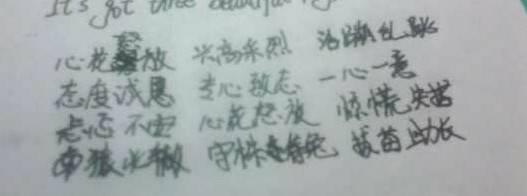 It's got three beautiful
心花怒放 兴高采烈 活蹦乱跳
态度诚恳 专心致志 一心一意
忐忑不安 心花怒放 惊慌失措
南辕北辙 守株待兔 拔苗助长